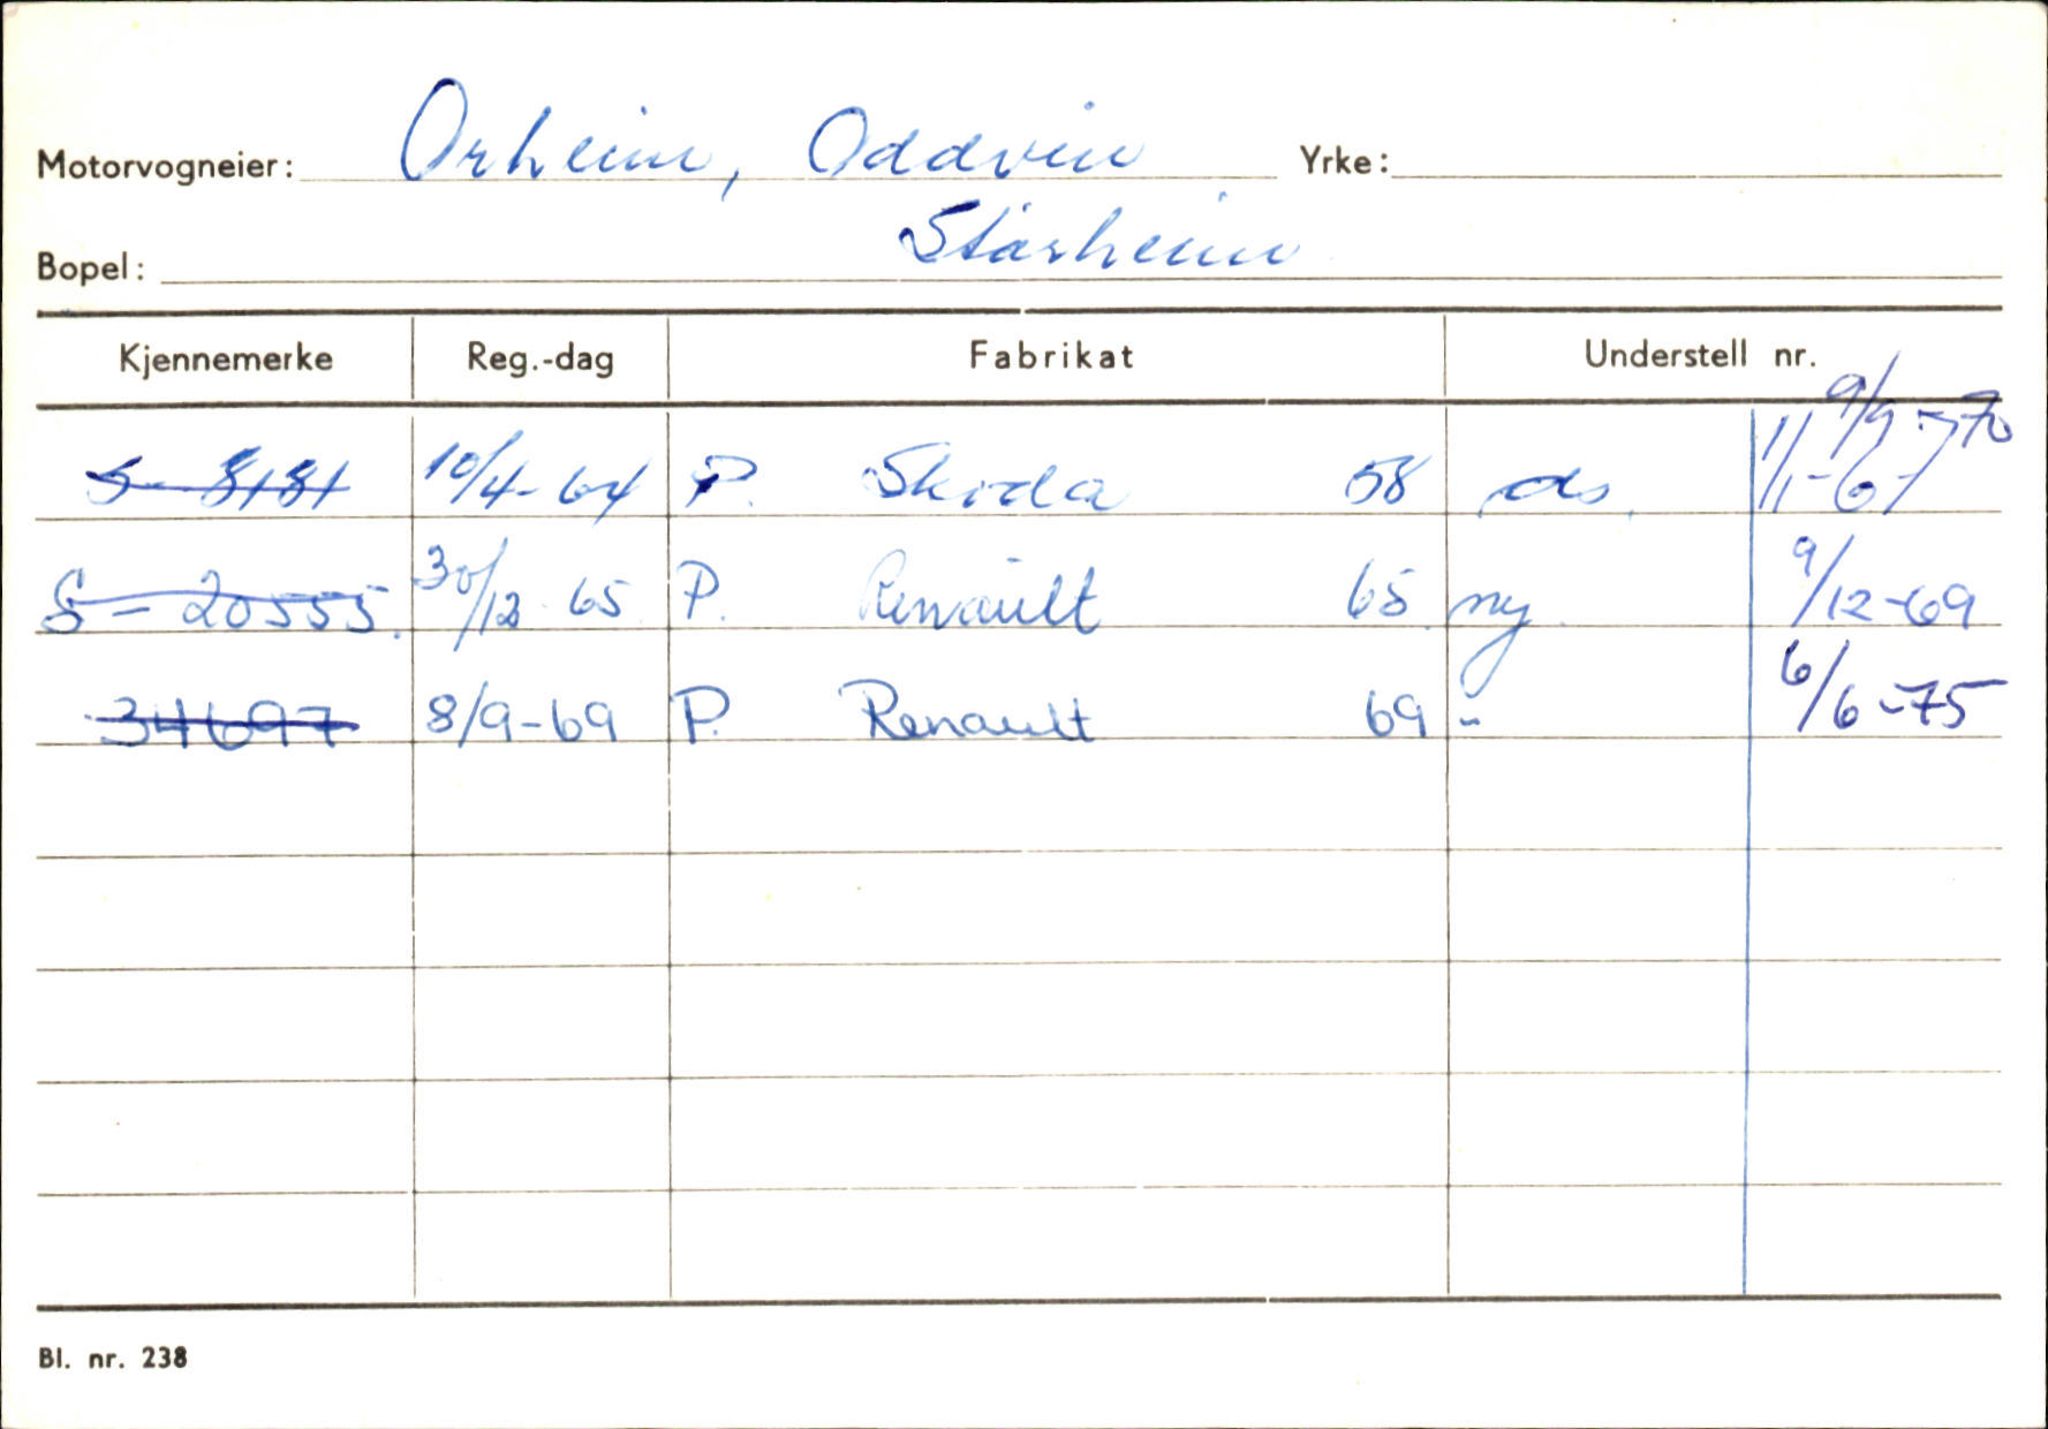 Motorvogneier: Orheim, Oddvin Yrke:
Bopel: Stårheim
Kjennemerke Reg.-dag Fabrikat Understell nr.
9/9-70
S-8181 10/4-64 P. Skoda 58 ds. 1/1-67
S-20555. 30/12 65 P. Renault 65 ny 9/12-69
34697 8/9-69 P. Renault 69 -"- 6/6-75
Bl. nr. 238